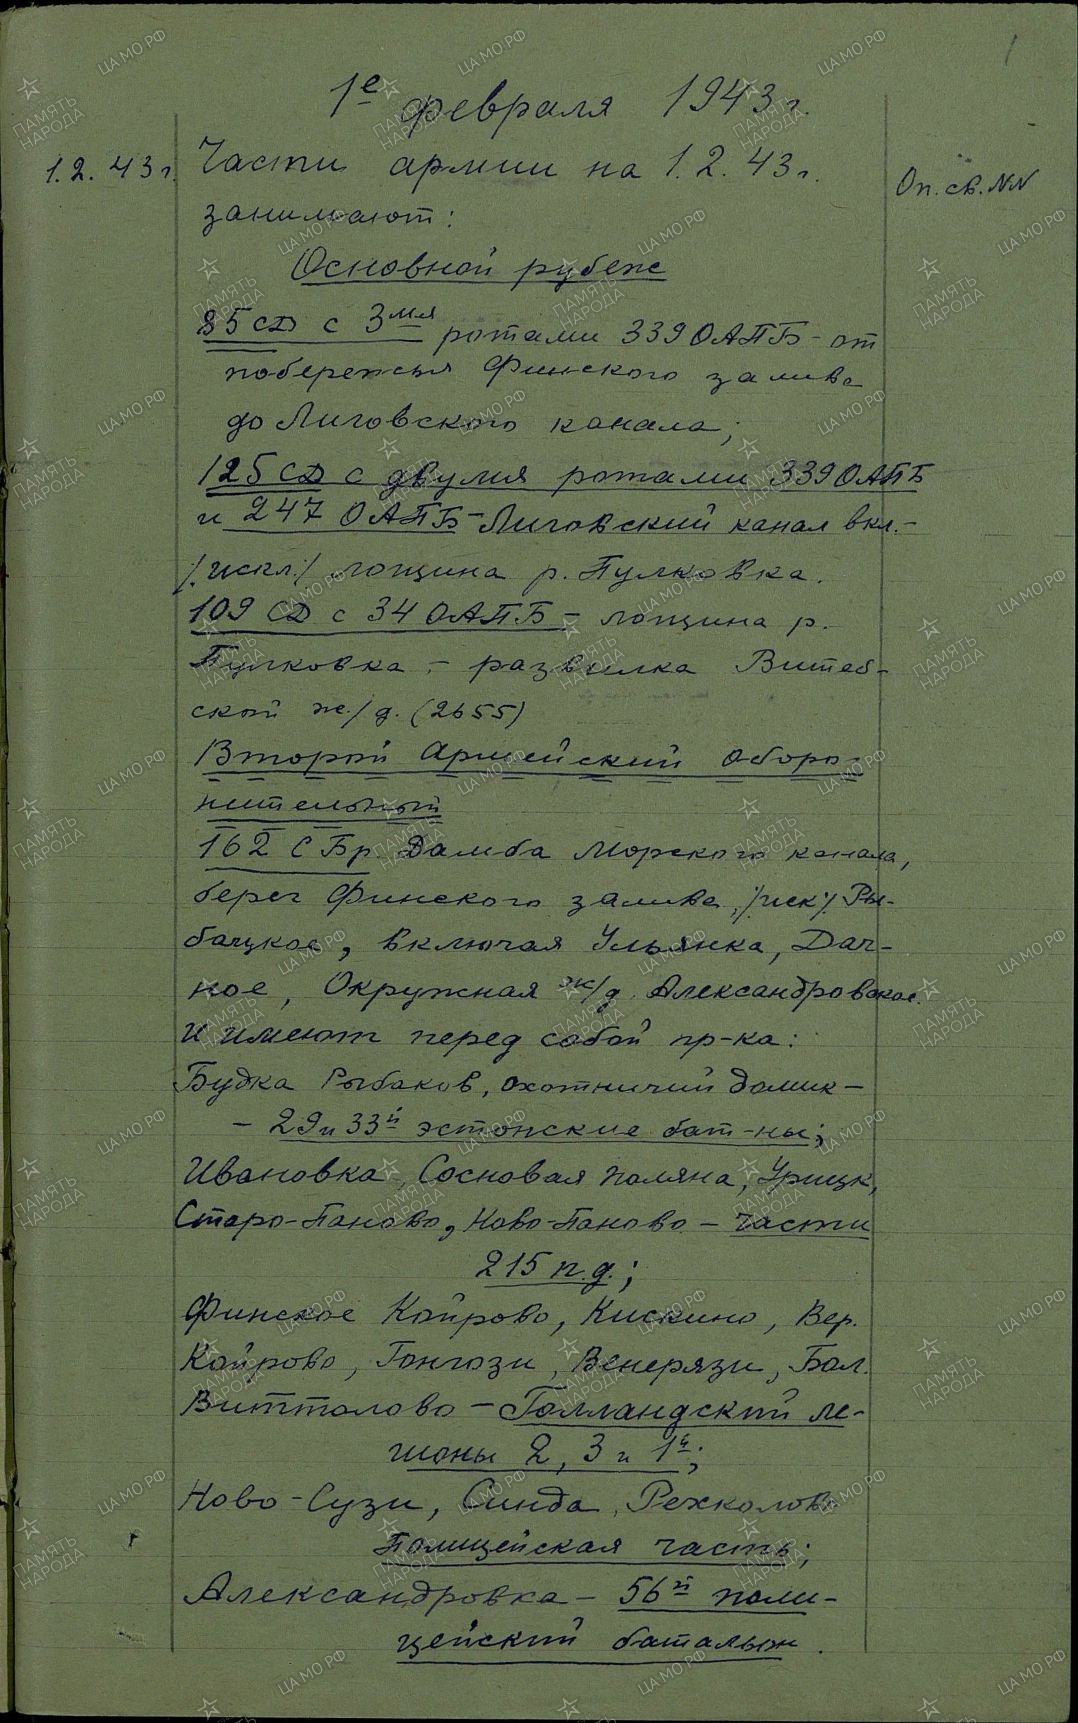 1е февраля 1943 г.
1.2.43 г. Части армии на 1.2.43 г. Оп. св. NN
занимают:
Основной рубеж
85 СД с 3мя ротами 339 ОАПБ - от
побережья Финского залива
до Лиговского канала;
125 СД с двумя ротами 339 ОАПБ
и 247 ОАПБ - Лиговский канал вкл. -
/искл./ лощина р. Пулковка.
109 СД с 34 ОАПБ - лощина р.
Пулковка - развилка Витеб-
ской ж/д. (2655)
Второй Армейский оборо-
нительный
162 СБр Дамба Морского канала,
берег Финского залива, /иск/. Ры-
бацкое, включая Ульянка, Дач-
ное, Окружная ж/д Александровское.
и имеют перед собой пр-ка:
Будка Рыбаков, охотничий домик -
- 29 и 33й эстонские бат-ны;
Ивановка, Сосновая поляна, Урицк,
Старо-Паново, Ново-Паново - части
215 п.д.;
Финское Койрово, Кискино, Вер.
Койрово, Гонгози, Венерязи, Бол.
Виттолово - Голландский ле-
гионы 2, 3 и 1й;
Ново-Сузи, Синда, Рехколово
Полицейская часть;
Александровка - 56й поли-
цейский батальон.
ПАМЯТЬ НАРОДА
ЦАМО РФ